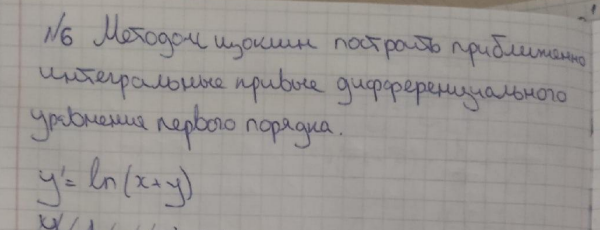 №6 Методом изоклин построить приближенно
интегральные кривые дифференциального
уравнения первого порядка.
y'= ln(x+y)